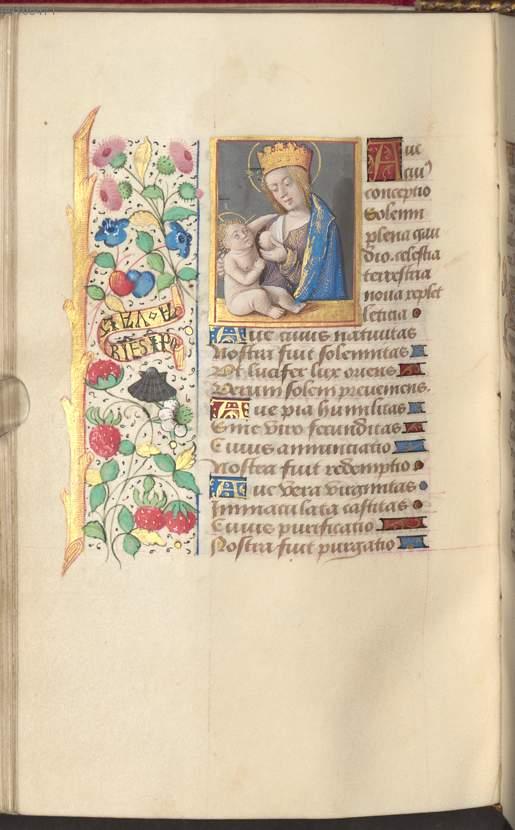 Aue
cui⁹
conceptio
Solemni
plena gau
dio. celestia
terrestria
noua replet
leticia
Aue cuius natiuitas
Nostra fuit solemnitas
Vt lucifer lux oriens
Verum solem preueniens.
Aue pia humilitas
Sine viro fecunditas
Cuius annunciatio
Nostra fuit redemptio
Aue vera virginitas
Immaculata castitas
Cuius purificatio
Nostra fuit purgatio